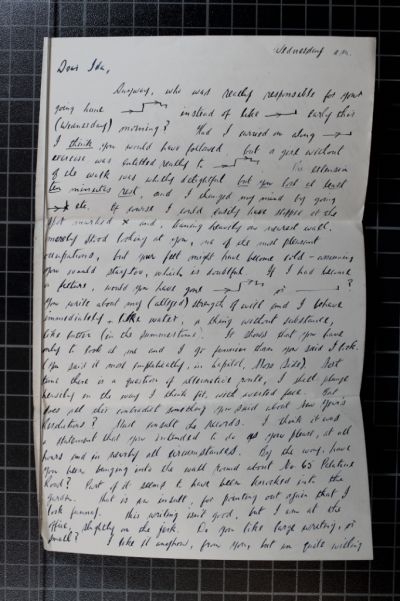 Wednesday a.m.
Dear Ida,
Anyway, who was really responsible for your
going home instead of like early this
(Wednesday) morning? Had I carried on along
I think you would have followed, but a girl without
exercise was entitled really to The extension
of the walk was wholly delightful but you lost at least
ten minutes rest, and I changed my mind by going
etc. Of course I could easily have stopped at the
spot marked x and, leaning heavily on nearest wall,
merely stood looking at you, one of the most pleasant
occupations, but your feet might have become cold - assuming
you would stay too, which is doubtful. If I had become
a fixture, would you have gone or ?
You write about my (alleged) strength of will and I behave
immediately like water, a thing without substance,
like butter (in the summertime). It shows that you have
only to look at me and I go funnier than you said I look.
(You said it most emphatically, in capitals, Nose Size). Next
time there is a question of alternative route, I shall plunge
heavily on the way I think fit, with averted face. But
does not this contradict something you said about New Year's
Resolutions? Must consult the records. I think it was
a statement that you intended to do as you please, at all
hours and in nearly all circumstances. By the way, have
you been banging into the wall round about No 65
Road? Part of it seems to have been knocked into the
garden. That is an insult, for pointing out again that I
look funny. This writing isn't good, but I am at the
office, slightly on the jerk. Do you like large writing, or
small? I like it anyhow, from you, but am quite willing